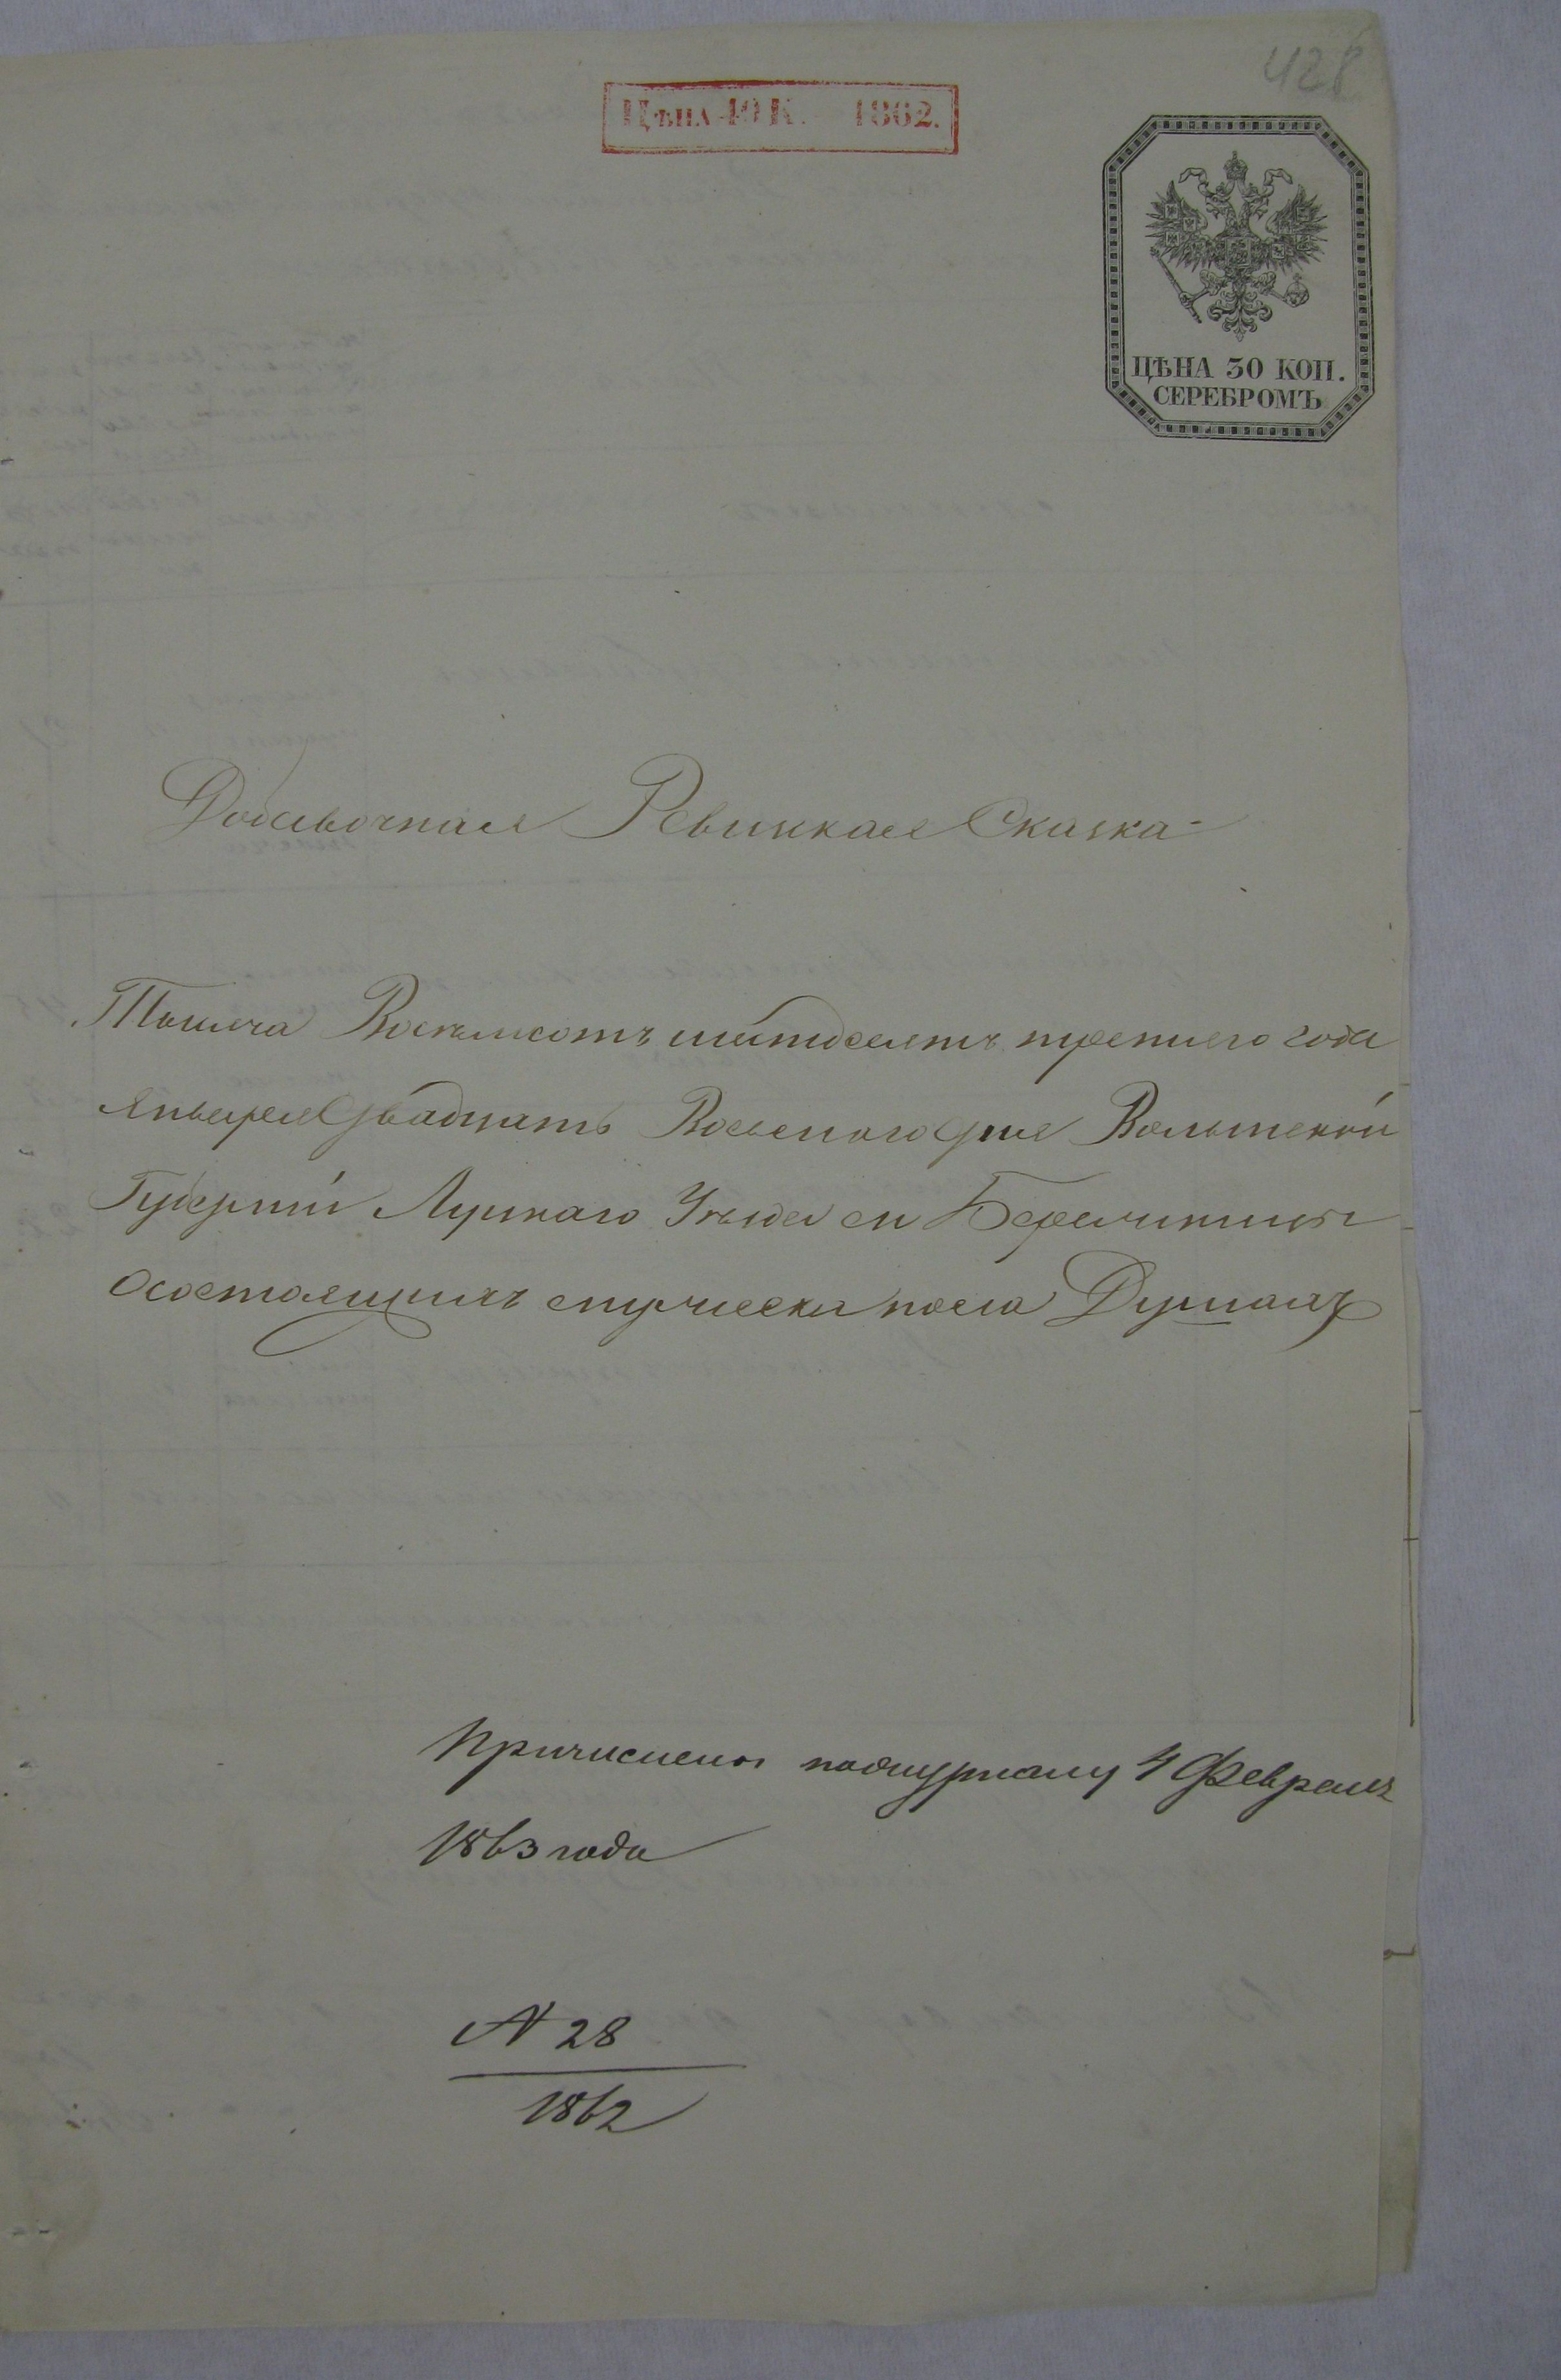 428
ЦѢНА 40 К. 1862.
ЦѢНА 30 КОП.
СЕРЕБРОМЪ
Добавочная Ревизкая Сказка
Тысяча Восемьсотъ шестдесятъ третьего года
Января двадцать Восьмого дня Волынской
Губерніи Луцкаго Уезда
Осостоящихъ Душахъ
Причислены пожурналу 4 Февраля
1863 года
N 28
1862